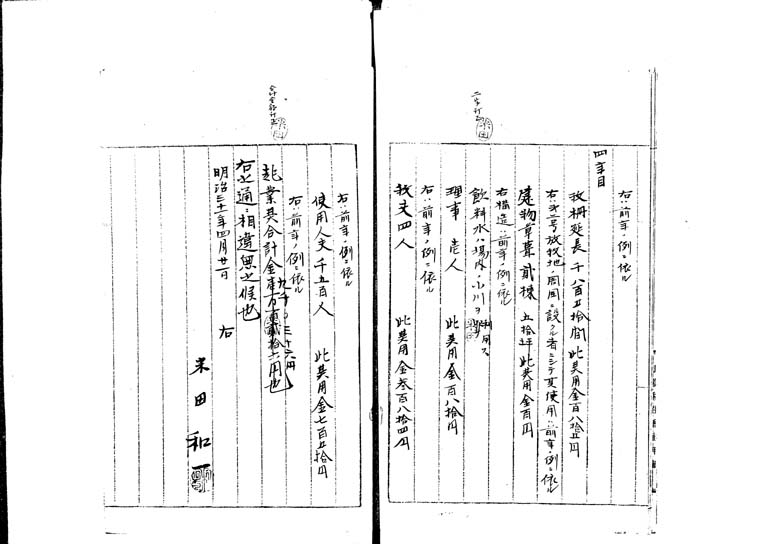 右ハ前年ノ例ニ依ル
四年目
牧柵延長千八百五拾間 此費用金百八拾五円
右ハ第二号放牧地ノ周囲ニ設クル者ニシテ其使用ハ前年ノ例ニ依ル
建物草葺貳棟 五拾坪 此費用金百円
右構造ハ前年ノ例ニ依ル
飲料水ハ場内ノ小川ヲ利用ス
理事 壱人 此費用金百八拾円
右ハ前年ノ例ニ依ル
牧夫四人 此費用金参百八拾四円
右ハ前年ノ例ニ依ル
使用人夫千五百人 此費用金七百五拾円
右ハ前年ノ例ニ依ル
起業費合計金
右之通ニ相違無之候也
明治三十一年四月廿一日
右
米田和一